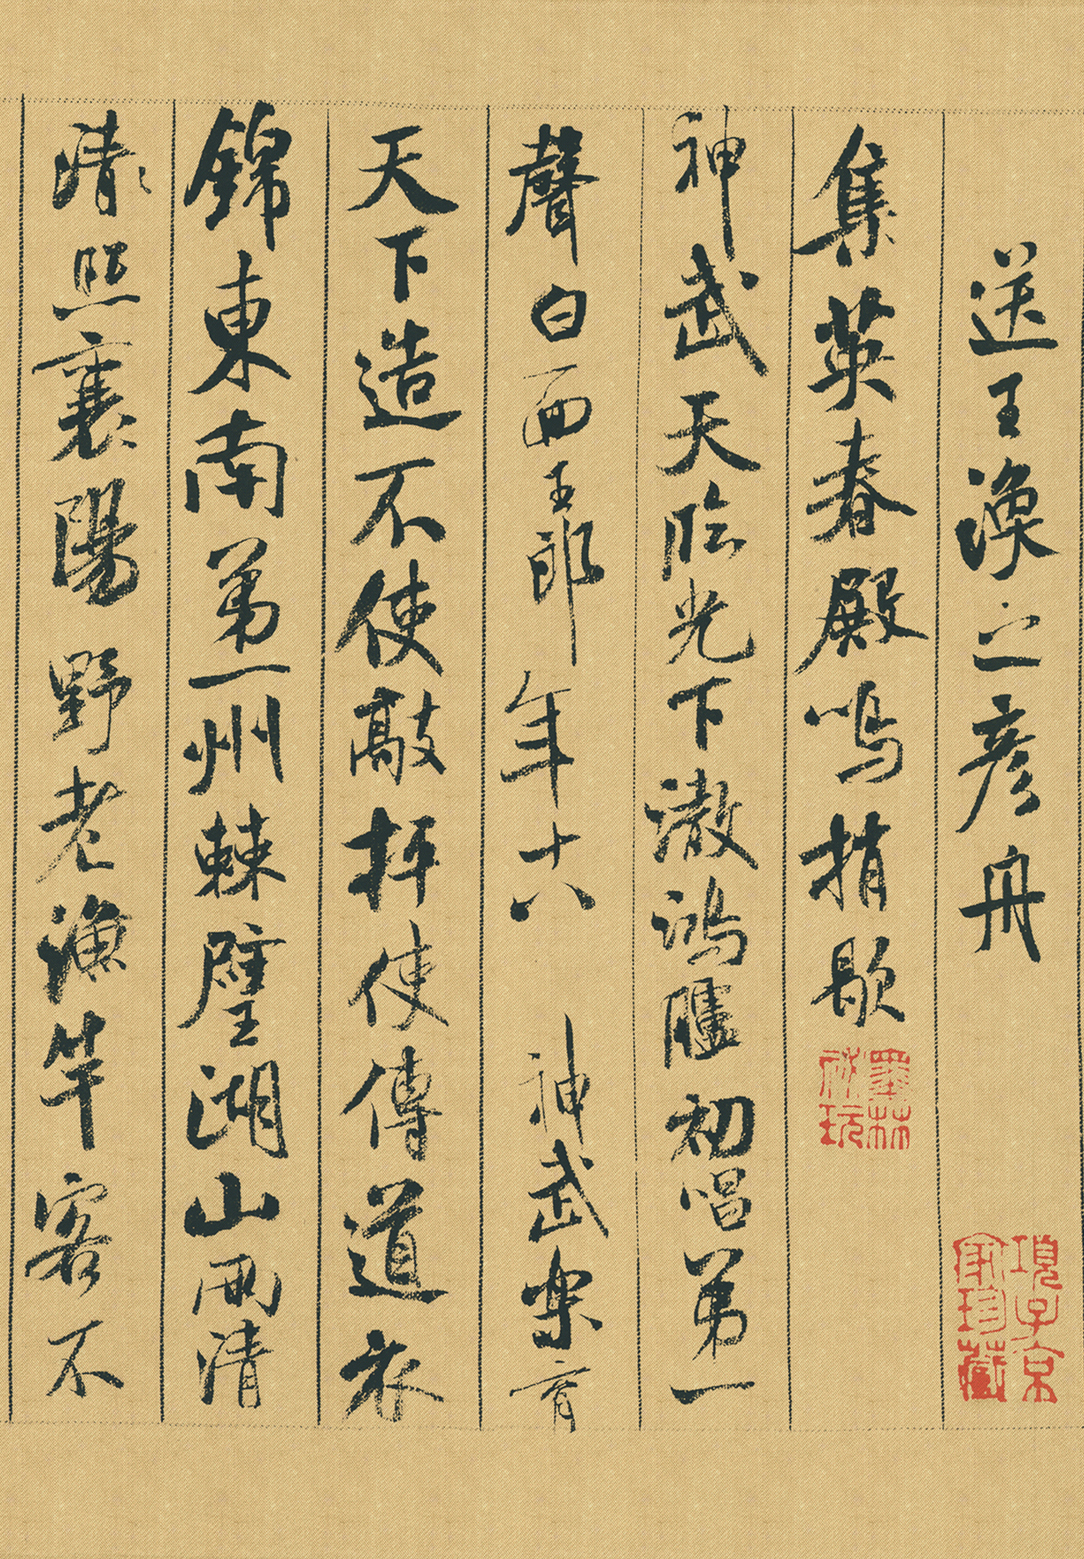 送王渙之彥舟
集英春殿鳴捎歇
神武天臨光下澈鴻臚初唱第一
聲白面王郎年十八神武樂育
天下造不使敲抨使傳道衣
錦東南第一州棘璧湖山兩清
清照襄陽野老漁竿客不
墨林祕玩
項子京家珍藏